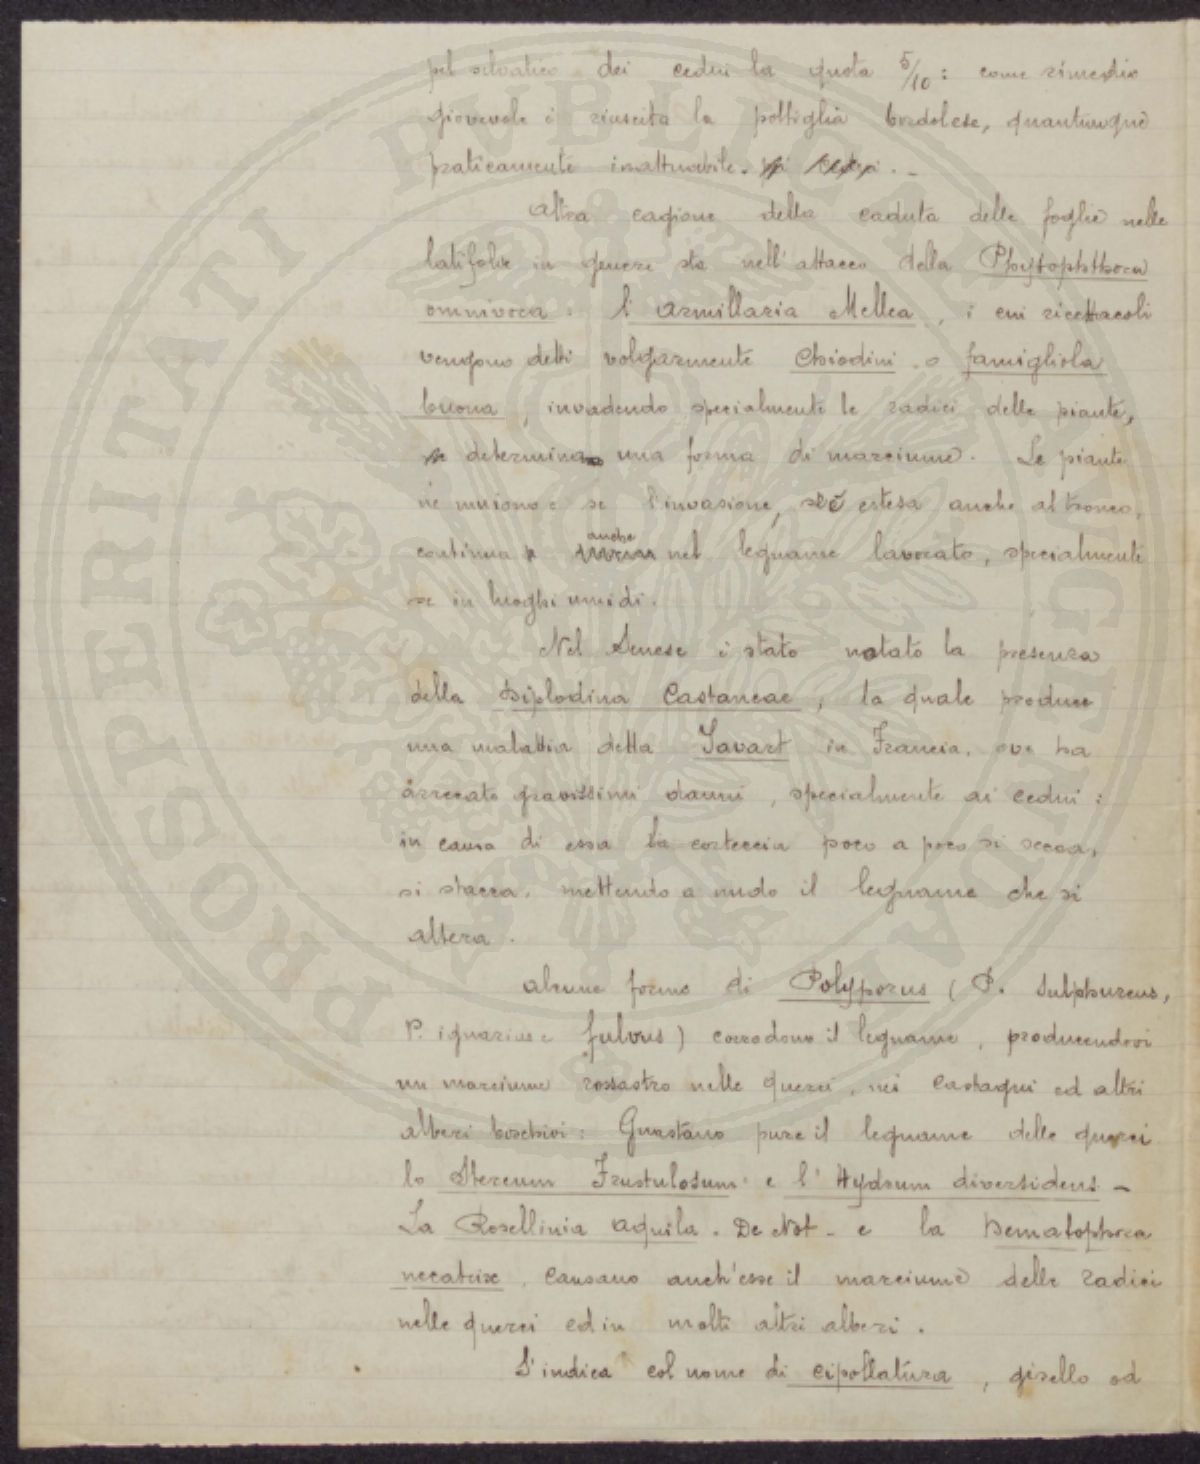 pel selvatico dei cedui la quota 5/10: come rimedio
giovevole è riuscita la poltiglia bordolese, quantunque
praticamente inattuabile.
Altra cagione della caduta delle foglie nelle
latifolie in genere sta nell'attacco della Phytophthora
omnivora: l'Armillaria Mellea, i cui ricettacoli
vengono detti volgarmente Chiodini o famigliola
buona, invadendo specialmente le radici delle piante,
determina una forma di marciume. Le piante
ne muiono e se l'invasione, s'è estesa anche al tronco,
continua anche nel legname lavorato, specialmente
se in luoghi umidi.
Nel Senese è stato notato la presenza
della Diplodina Castaneae, la quale produce
una malattia detta Javart in Francia, ove ha
arrecato gravissimi danni, specialmente ai cedui:
in causa di essa la corteccia poco a poco si secca,
si stacca, mettendo a nudo il legname che si
altera.
Alcune forme di Polyporus (P. Sulphureus,
P. igniarius e fulvus) corrodono il legname, producendovi
un marciume rossastro nelle querci, nei Castagni ed altri
alberi boschivi: Guastano pure il legname delle querci
lo Stereum Frustulosum e l'Hydnum diversidens -
La Rosellinia aquila. De Not - e la Dematophora
necatrix, causano anch'esse il marciume delle radici
nelle querci ed in molti altri alberi.
S'indica col nome di cipollatura, girello od
PROSPERITATI PUBLICAE AUGENDAE